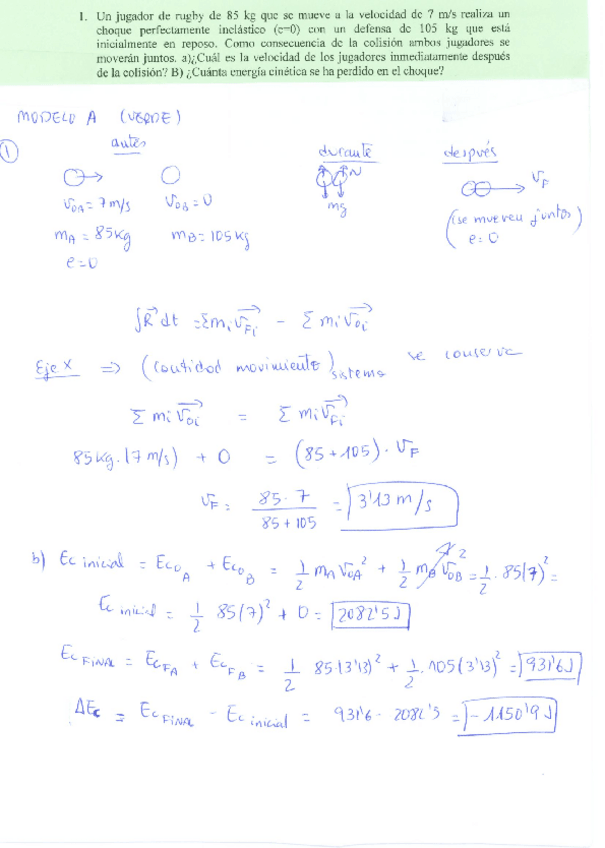 1. Un jugador de rugby de 85 kg que se mueve a la velocidad de 7 m/s realiza un
choque perfectamente inelástico (e=0) con un defensa de 105 kg que está
inicialmente en reposo. Como consecuencia de la colisión ambos jugadores se
moverán juntos. a)¿Cuál es la velocidad de los jugadores inmediatamente después
de la colisión? B) ¿Cuánta energía cinética se ha perdido en el choque?
MODELO A (VERDE)
1
antes
durante
después
N
mg
V_F
V_0A = 7 m/s V_0B = 0
(se mueven juntos)
e = 0
m_A = 85 kg m_B = 105 kg
e = 0
∫R⃗ dt = Σ m_i V_Fi⃗ - Σ m_i V_0i⃗
Eje X ⇒ (cantidad movimiento) sistema se conserve
Σ m_i V_0i⃗ = Σ m_i V_Fi⃗
85 kg · (7 m/s) + 0 = (85 + 105) · V_F
V_F = 85 · 7 / 85 + 105 = 3'13 m/s
b) Ec inicial = Ec_0A + Ec_0B = 1/2 m_A V_0A² + 1/2 m_B V_0B² = 1/2 · 85 (7)² =
Ec inicial = 1/2 85 (7)² + 0 = 2082'5 J
Ec FINAL = Ec_FA + Ec_FB = 1/2 85 (3'13)² + 1/2 · 105 (3'13)² = 931'6 J
ΔEc = Ec FINAL - Ec inicial = 931'6 - 2082'5 = -1150'9 J